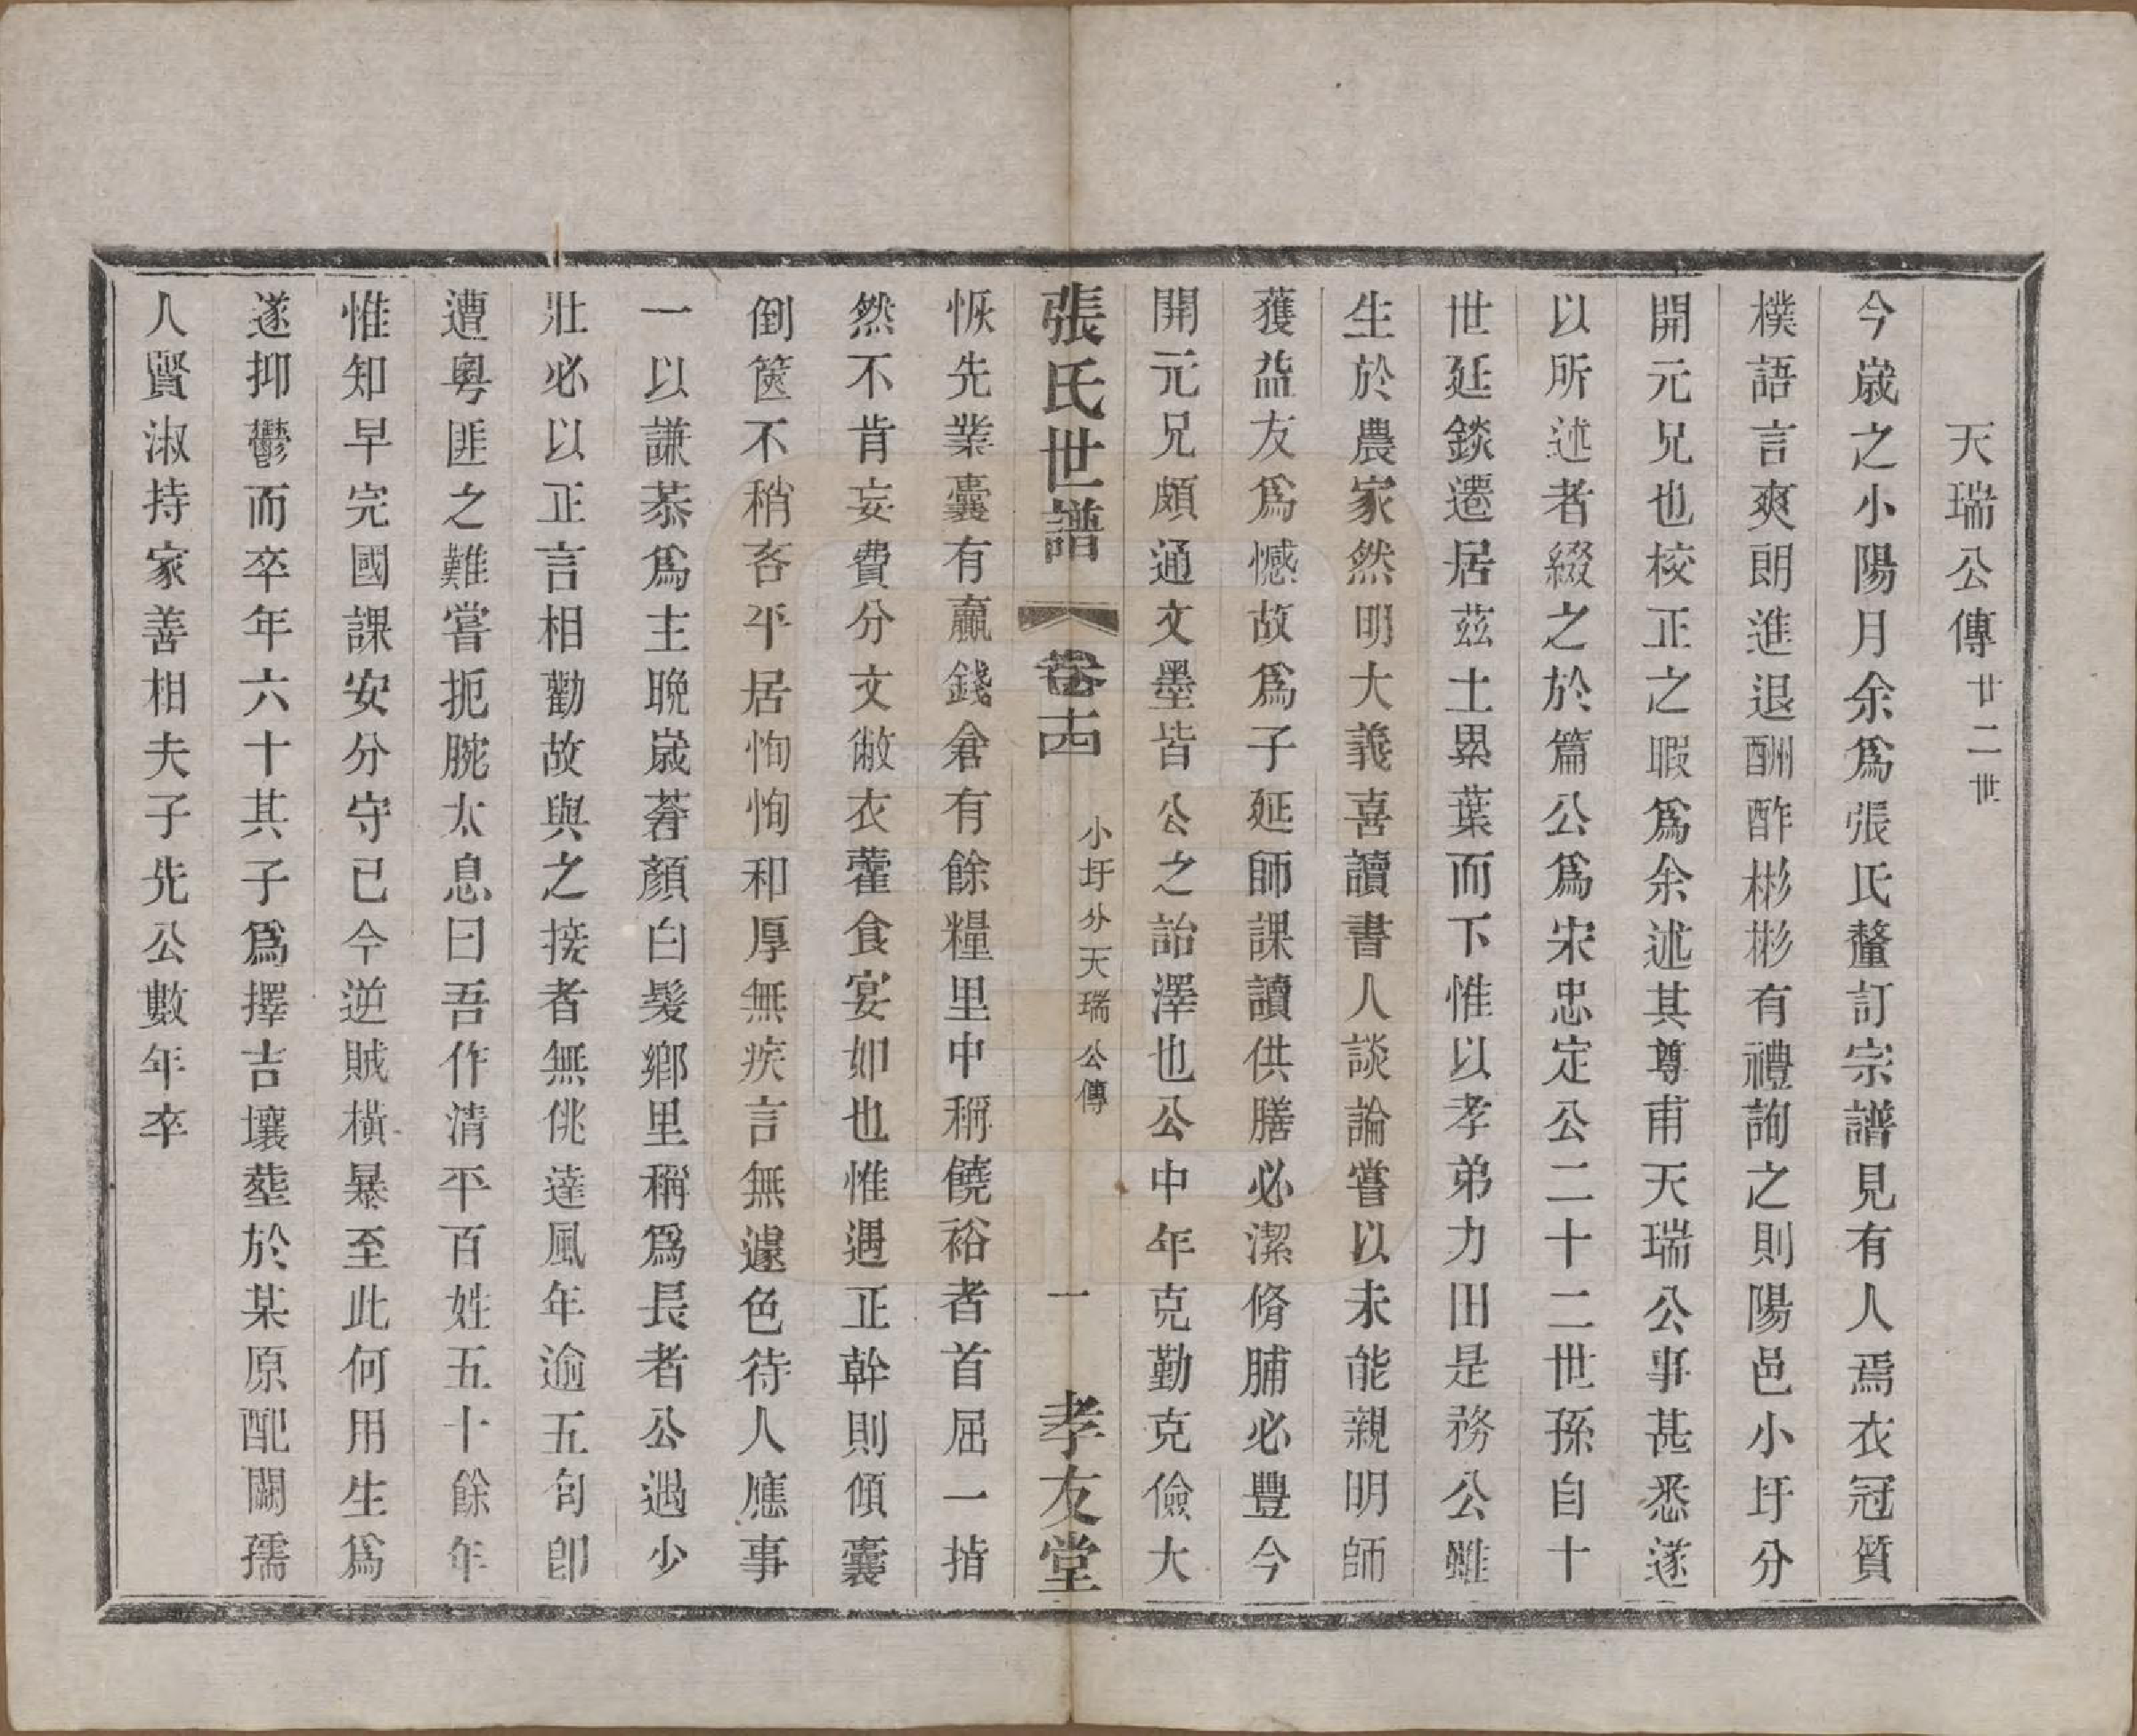 天瑞公傳廿二世
今歲之小陽月余爲張氏釐訂宗譜見有人焉衣冠質
樸語言爽朗進退酬酢彬彬有禮詢之則陽邑小圩分
開元兄也校正之暇爲余述其尊甫天瑞公事甚悉遂
以所述者綴之於篇公爲宋忠定公二十二世孫自十
世延錟遷居茲土累葉而下惟以孝弟力田是務公雖
生於農家然明大義喜讀書人談論嘗以未能親明師
獲益友爲憾故爲子延師課讀供膳必潔脩脯必豐今
開元兄頗通文墨皆公之詒澤也公中年克勤克儉大
張氏世譜 卷十四 小圩分天瑞公傳 一 孝友堂
恢先業囊有贏錢倉有餘糧里中稱饒裕者首屈一指
然不肯妄費分文敝衣藿食宴如也惟遇正幹則傾囊
倒篋不稍吝平居恂恂和厚無疾言無遽色待人應事
一以謙恭爲主晚歲蒼顏白髮鄉里稱爲長者公遇少
壯必以正言相勸故與之接者無佻達風年逾五旬卽
遭粵匪之難嘗扼腕太息曰吾作清平百姓五十餘年
惟知早完國課安分守已今逆賊橫暴至此何用生爲
遂抑鬱而卒年六十其子爲擇吉壤塟於某原配闞孺
人賢淑持家善相夫子先公數年卒